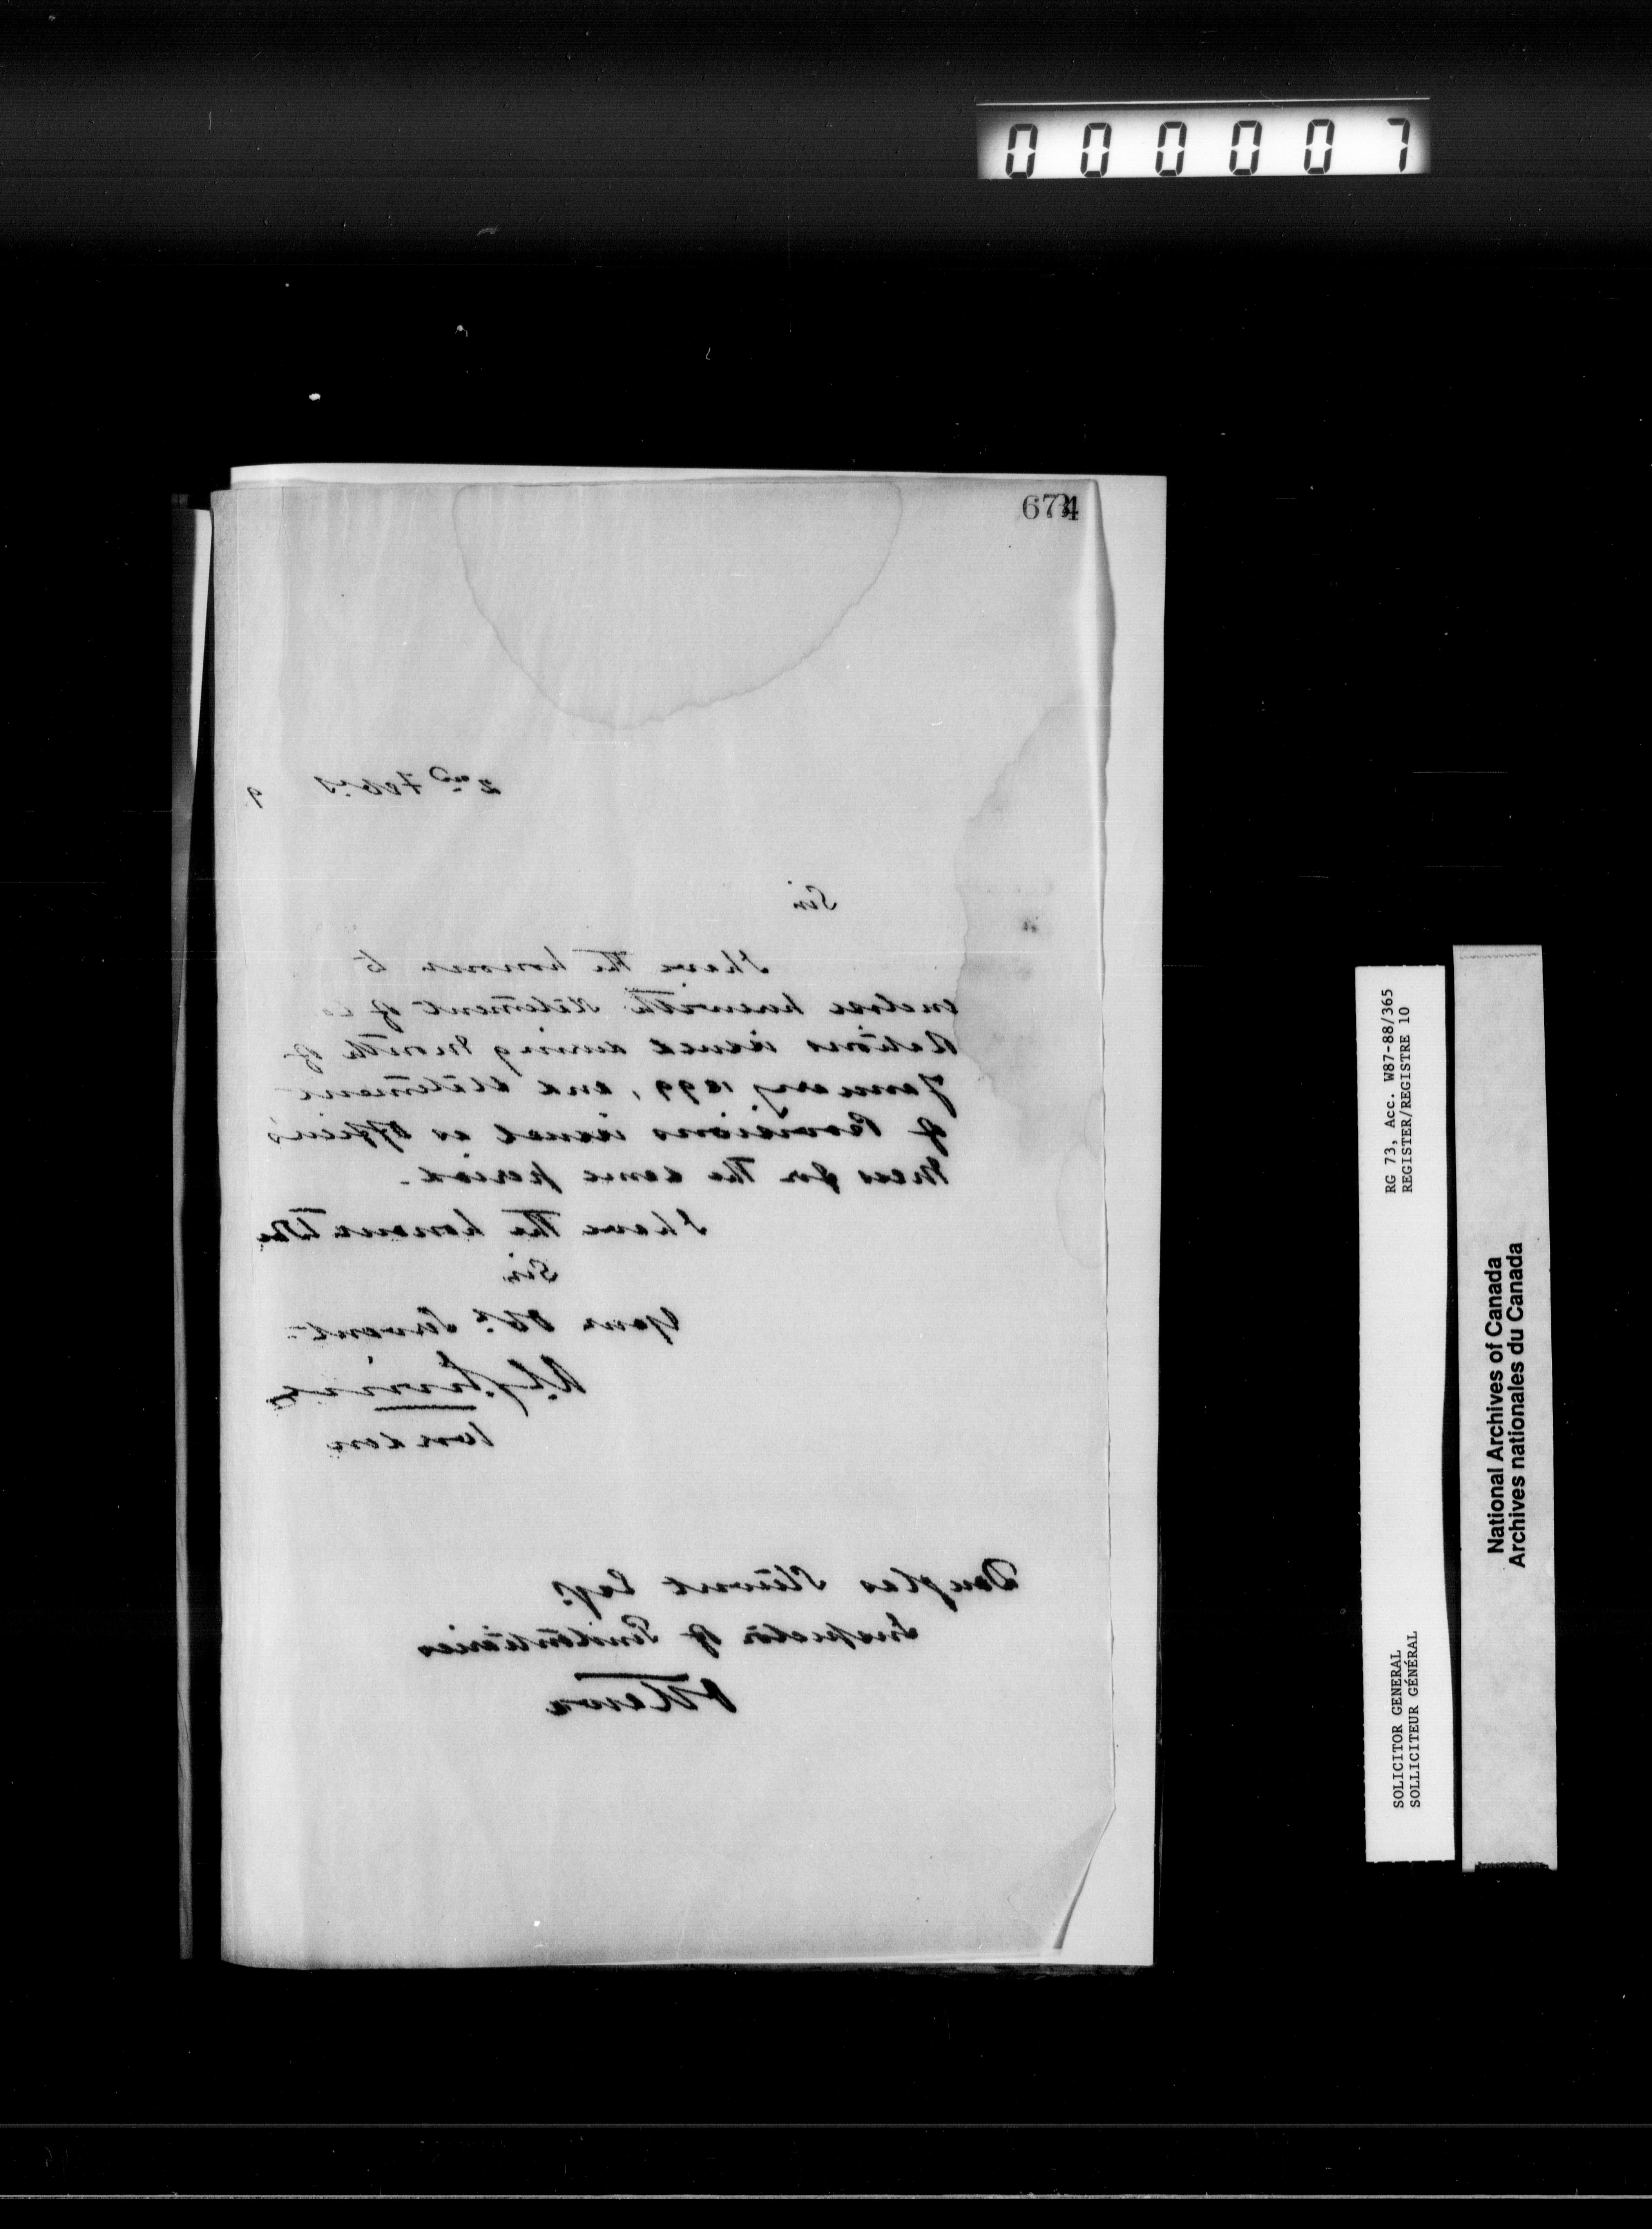 000007
674
2nd Feby 9
Sir
I have the honour to
enclose herewith Statement of
Rations issued during Month of
January 1899, and Statement
of Provisions issued as Officer's
Mess for the same period.
I have the honour to be
Sir
Your Obt. Servant
Warden
Douglas Stewart Esq.
Inspector of Penitentiaries
Ottawa
RG 73, Acc. W87-88/365
REGISTER/REGISTRE 10
SOLICITOR GENERAL
SOLLICITEUR GÉNÉRAL
National Archives of Canada
Archives nationales du Canada